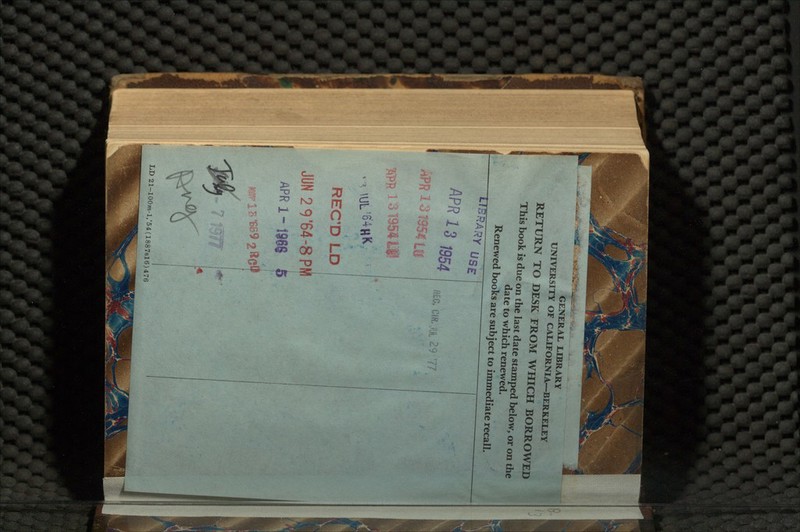 GENERAL LIBRARY
UNIVERSITY OF CALIFORNIA—BERKELEY
RETURN TO DESK FROM WHICH BORROWED
This book is due on the last date stamped below, or on the
date to which renewed.
Renewed books are subject to immediate recall.
LIBRARY USE
APR 13 1954
REC. CIR. JUL 29 '77
APR 13 1954 LU
APR 13 1954 LU
JUL '64 HK
REC'D LD
JUN 29 '64-8 PM
APR 1 - 1966 5
1 5 '66 9 2 RCD
July - 7 1977
LD 21-100m-1,'54(1887s16)476